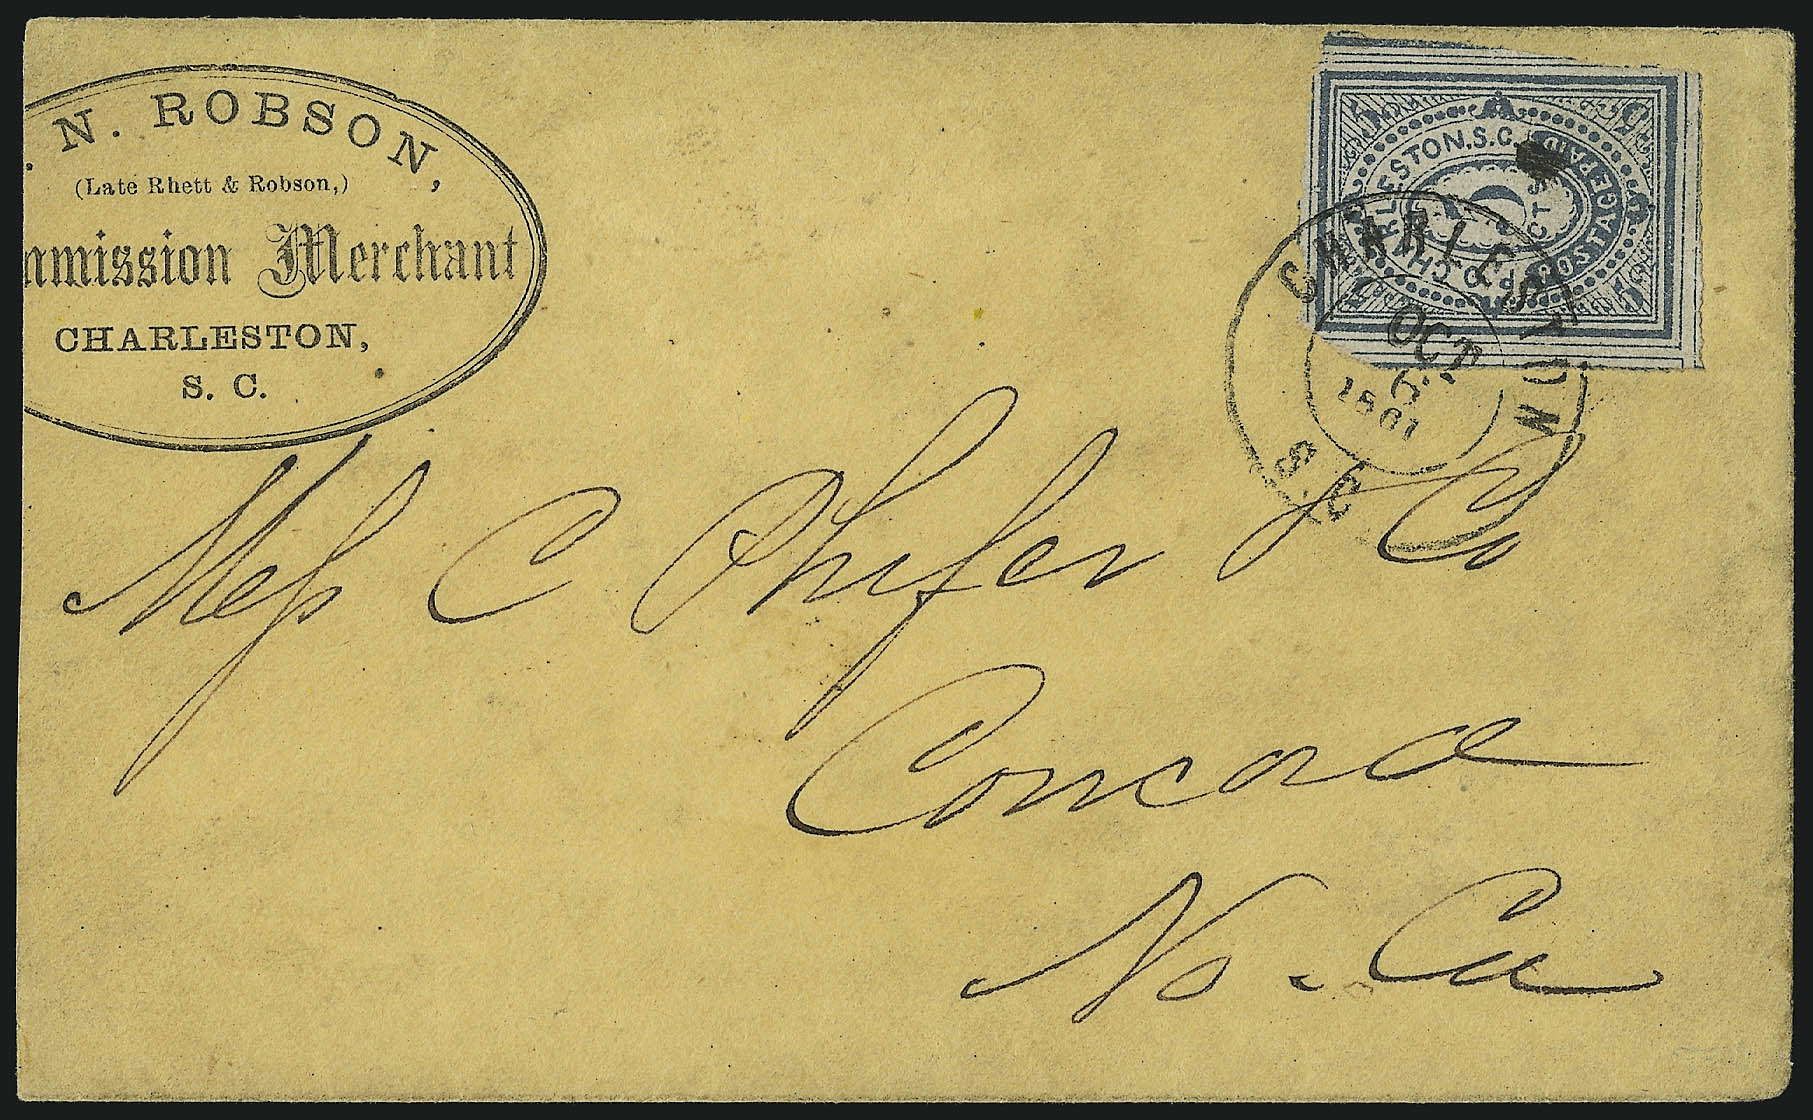 . N. ROBSON,
(Late Rhett & Robson,)
mmission Merchant
CHARLESTON,
S. C.
P.O. CHARLESTON. S.C.
POSTAGE PAID
5
CTS
CHARLESTON
OCT
6
1861
S.C
Mess C Phifer & Co
Concord
No. Ca